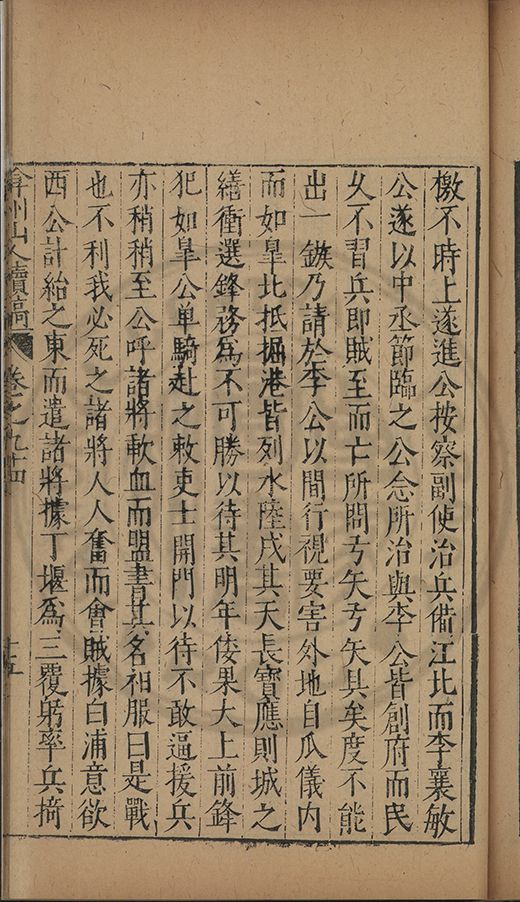 檄不時上遂進公按察副使治兵備江北而李襄敏
公遂以中丞節臨之公念所治與李公皆創府而民
久不習兵即賊至而亡所問弓矢弓矢具矣度不能
出一鏃乃請於李公以間行視要害外地自瓜儀內
而如皐北抵掘港皆列水陸戍其天長寶應則城之
繕衝選鋒務為不可勝以待其明年倭果大上前鋒
犯如皐公單騎赴之敕吏士開門以待不敢逼援兵
亦稍稍至公呼諸將歃血而盟書其名衵服曰是戰
也不利我必死之諸將人人奮而會賊據白浦意欲
西公計紿之東而遣諸將據丁堰為三覆躬率兵掎
弇州山人續稿 卷之九十四 十五